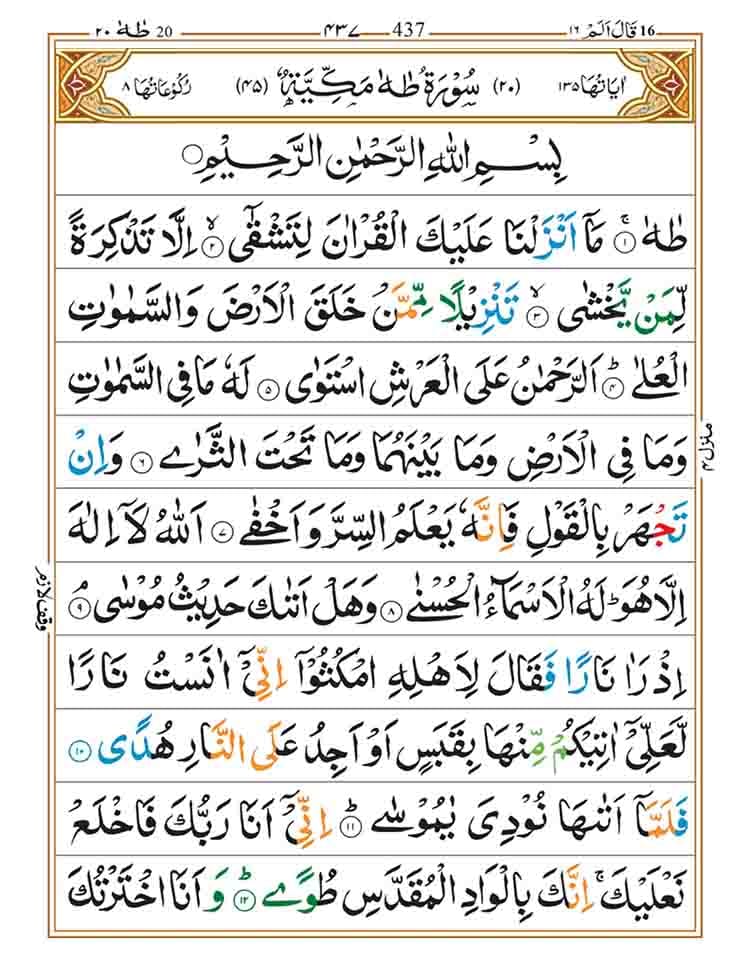 16 قَالَ اَلَمْ ١٦ 437 ٤٣٧ 20 طٰهٰ ٢٠
اٰيَاتُهَا ١٣٥ (٢٠) سُوْرَةُ طٰهٰ مَكِّيَّةٌ (٤٥) رُكُوْعَاتُهَا ٨
بِسْمِ اللّٰهِ الرَّحْمٰنِ الرَّحِيْمِ
طٰهٰ ۚ ١ مَاۤ اَنْزَلْنَا عَلَيْكَ الْقُرْاٰنَ لِتَشْقٰۤى ۙ ٢ اِلَّا تَذْكِرَةً
لِّمَنْ يَّخْشٰى ۙ ٣ تَنْزِيْلًا مِّمَّنْ خَلَقَ الْاَرْضَ وَالسَّمٰوٰتِ
الْعُلٰى ؕ ٤ اَلرَّحْمٰنُ عَلَى الْعَرْشِ اسْتَوٰى ٥ لَهٗ مَا فِى السَّمٰوٰتِ
وَمَا فِى الْاَرْضِ وَمَا بَيْنَهُمَا وَمَا تَحْتَ الثَّرٰى ٦ وَاِنْ
تَجْهَرْ بِالْقَوْلِ فَاِنَّهٗ يَعْلَمُ السِّرَّ وَاَخْفٰى ٧ اَللّٰهُ لَاۤ اِلٰهَ
اِلَّا هُوَ ؕ لَهُ الْاَسْمَآءُ الْحُسْنٰى ٨ وَهَلْ اَتٰىكَ حَدِيْثُ مُوْسٰى ۘ ٩
اِذْ رَاٰ نَارًا فَقَالَ لِاَهْلِهِ امْكُثُوْۤا اِنِّىْۤ اٰنَسْتُ نَارًا
لَّعَلِّىْۤ اٰتِيْكُمْ مِّنْهَا بِقَبَسٍ اَوْ اَجِدُ عَلَى النَّارِ هُدًى ١٠
فَلَمَّاۤ اَتٰىهَا نُوْدِىَ يٰمُوْسٰى ؕ ١١ اِنِّىْۤ اَنَا رَبُّكَ فَاخْلَعْ
نَعْلَيْكَ ۚ اِنَّكَ بِالْوَادِ الْمُقَدَّسِ طُوًى ؕ ١٢ وَ اَنَا اخْتَرْتُكَ
منزل ٤
وقف لازم